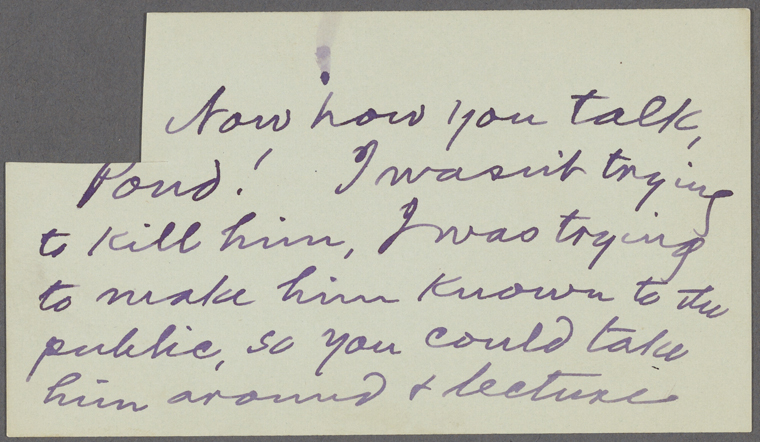 Now how you talk,
Pond! I wasn't trying
to kill him, I was trying
to make him known to the
public, so you could take
him around & lecture